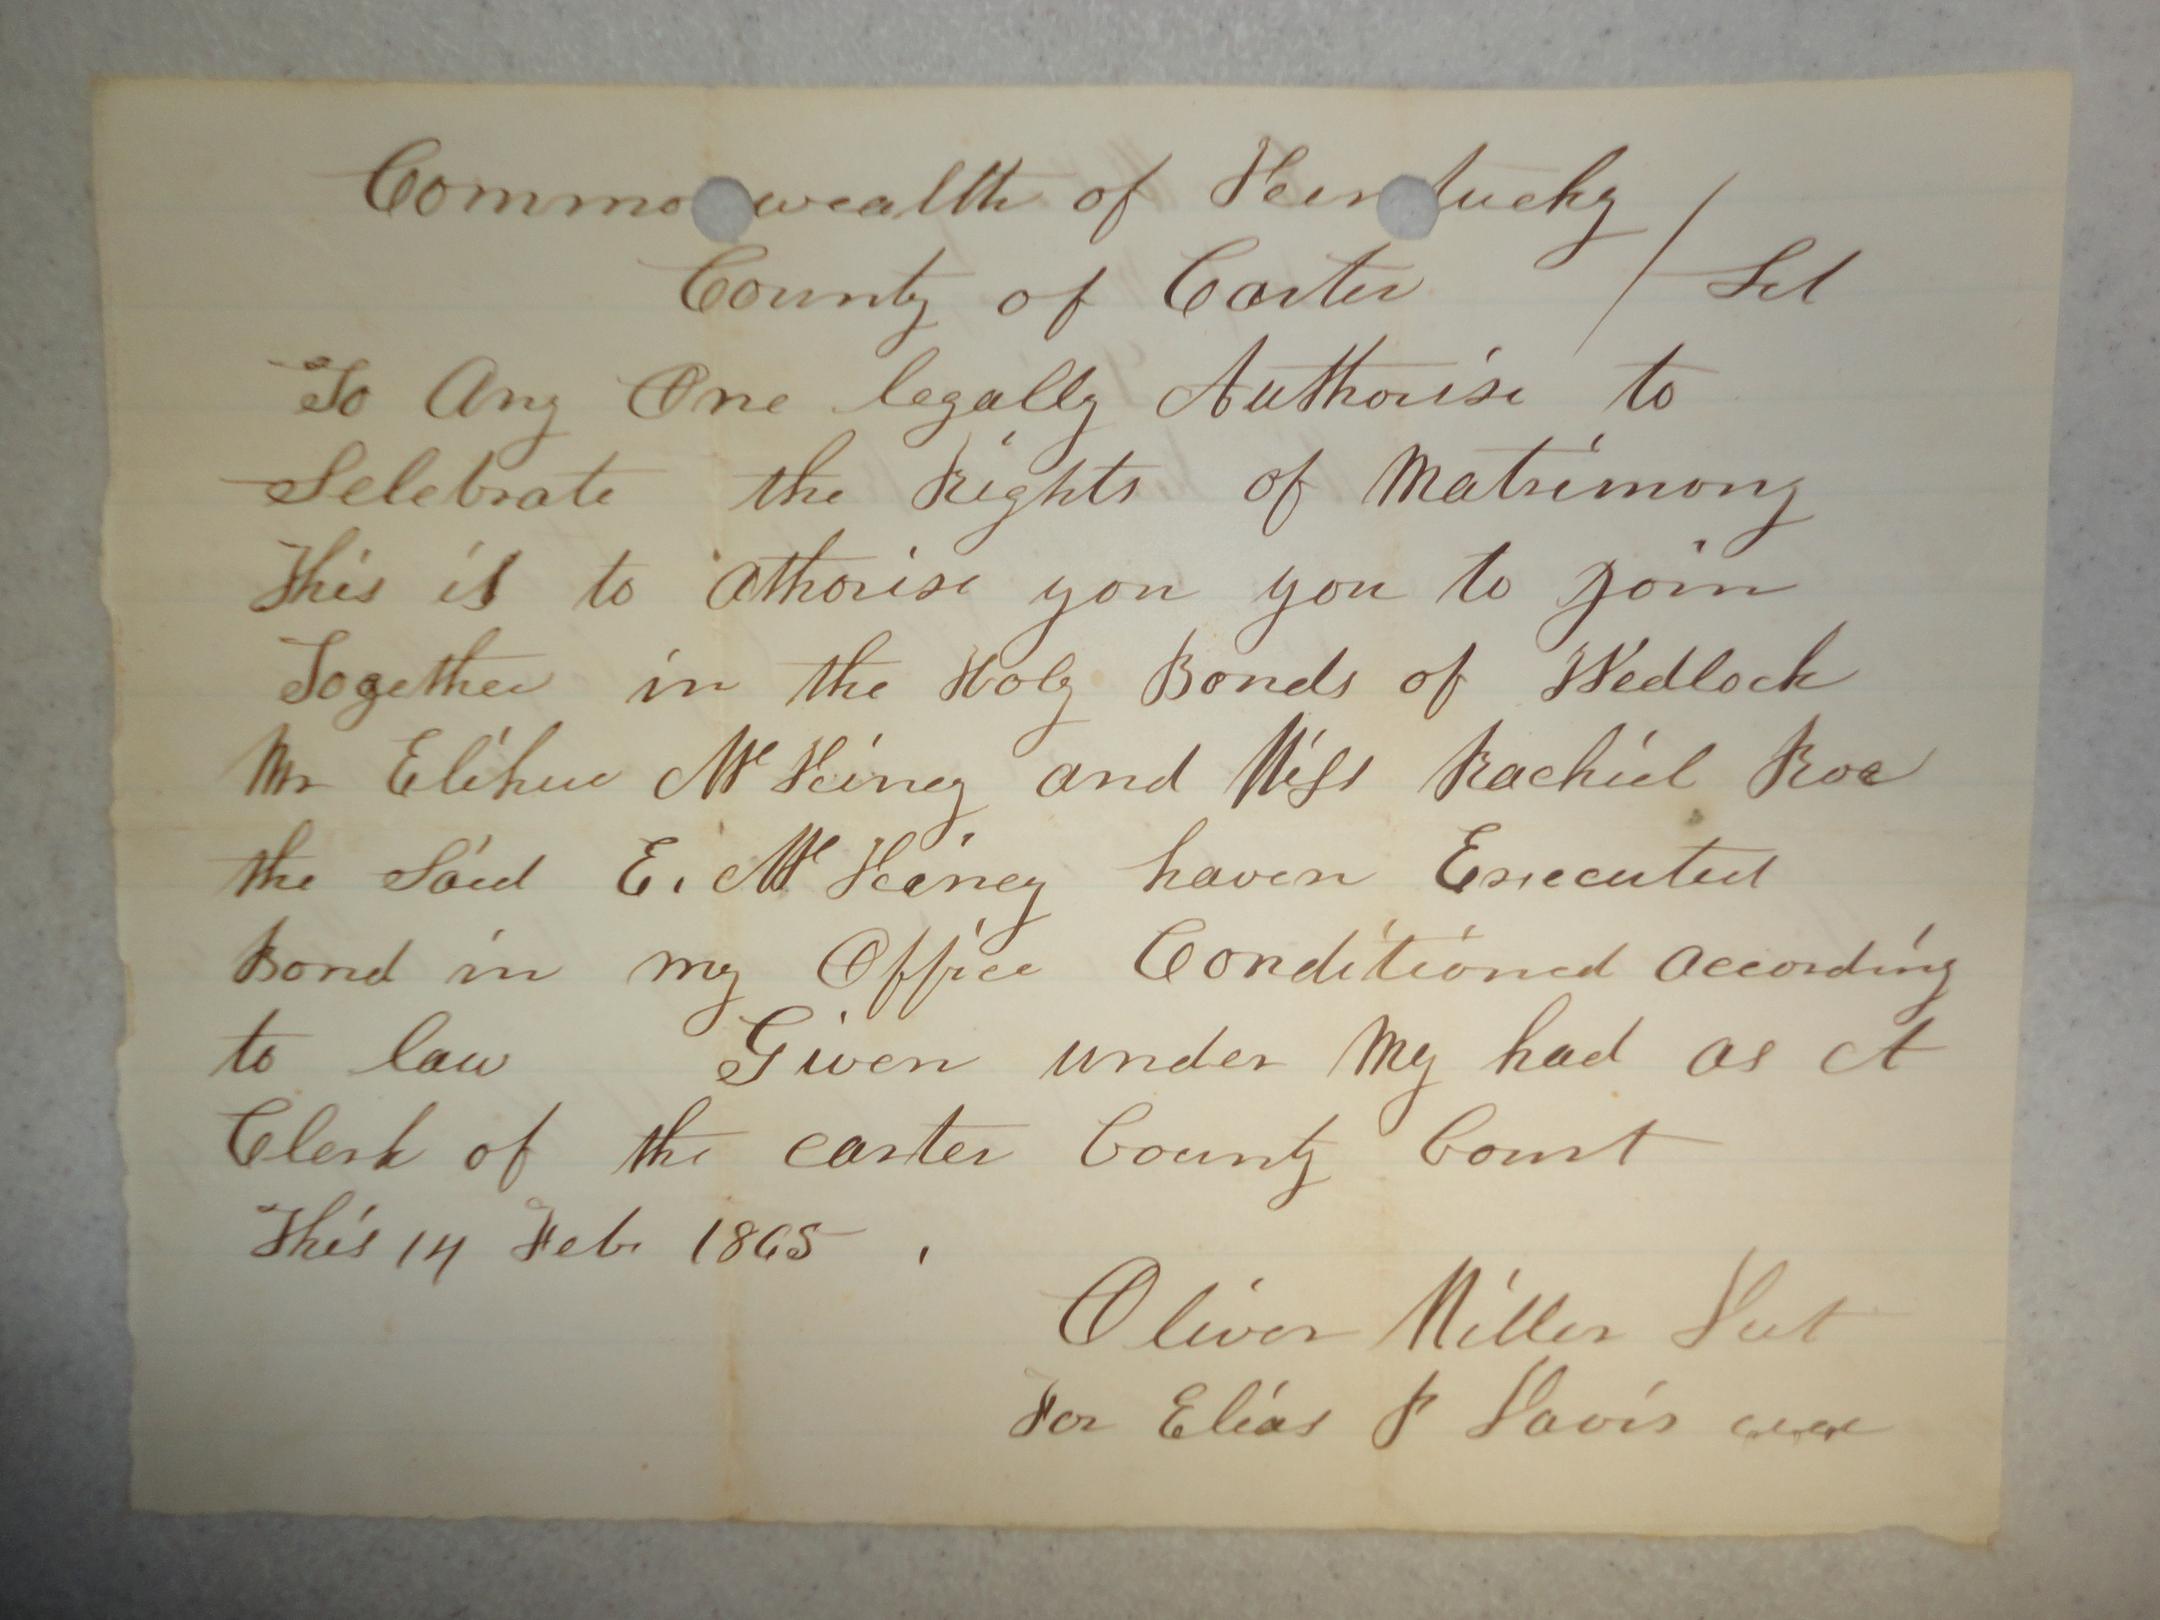 Commo wealth of Kentucky /
County of Carter / Sct
To Any One legally Authorise to
Selebrate the Rights of Matrimony
This is to athorise you you to Join
Together in the Holy Bonds of Wedlock
Mr Elihue McKiney and Miss Rachiel Roe
the Said E. McKiney haven Executed
Bond in my Office Conditioned according
to law Given under My had as A
Clerk of the carter County Court
This 14 Feb. 1865
Oliver Miller
For Elias P Davis